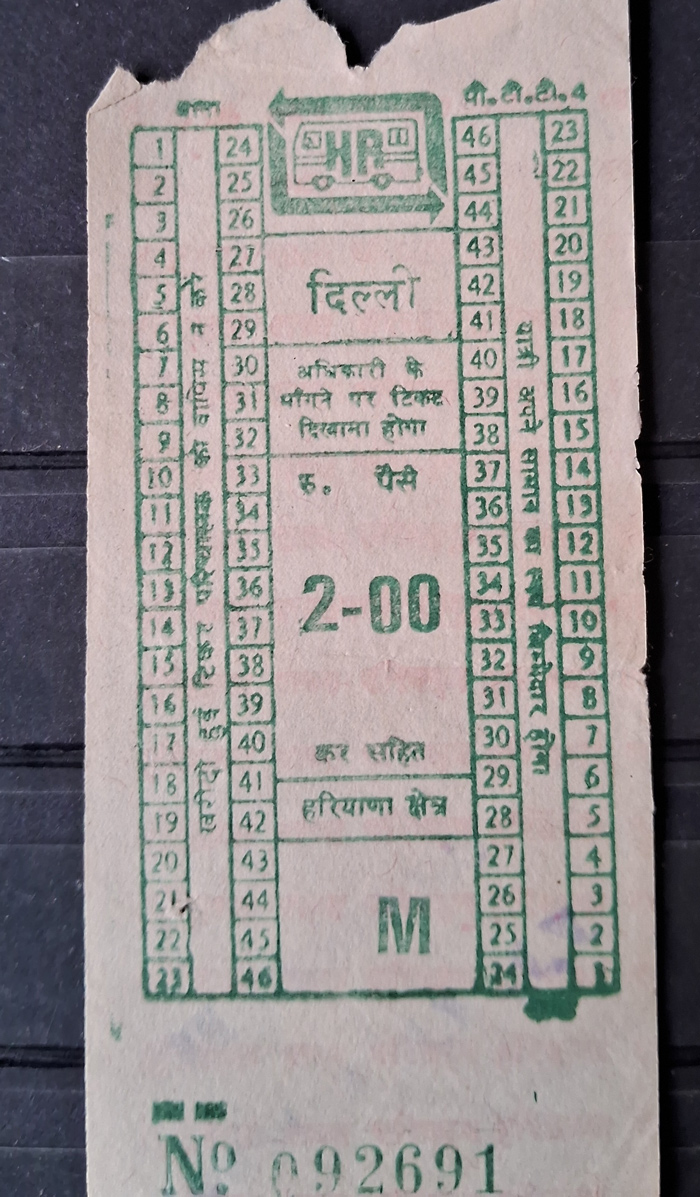 पी.टी.टी.4
HR
दिल्ली
अधिकारी के
माँगने पर टिकट
दिखाना होगा
रु. पैसे
2-00
कर सहित
हरियाणा क्षेत्र
M
1 24
2 25
3 26
4 27
5 28
6 29
7 30
8 31
9 32
10 33
11 34
12 35
13 36
14 37
15 38
16 39
17 40
18 41
19 42
20 43
21 44
22 45
23 46
खरीदी हुई टिकट परिचालक को वापिस न करें
46 23
45 22
44 21
43 20
42 19
41 18
40 17
39 16
38 15
37 14
36 13
35 12
34 11
33 10
32 9
31 8
30 7
29 6
28 5
27 4
26 3
25 2
24 1
यात्री अपने सामान का स्वयं जिम्मेवार होगा
No 092691